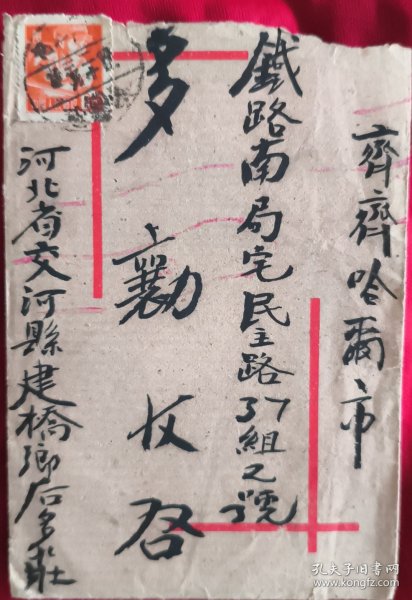 齊齊哈爾市
鐵路南局宅民主路37組2號
多襄勷收啓
河北省交河縣建橋鄉后多莊
孔夫子旧书网
www.kongfz.com